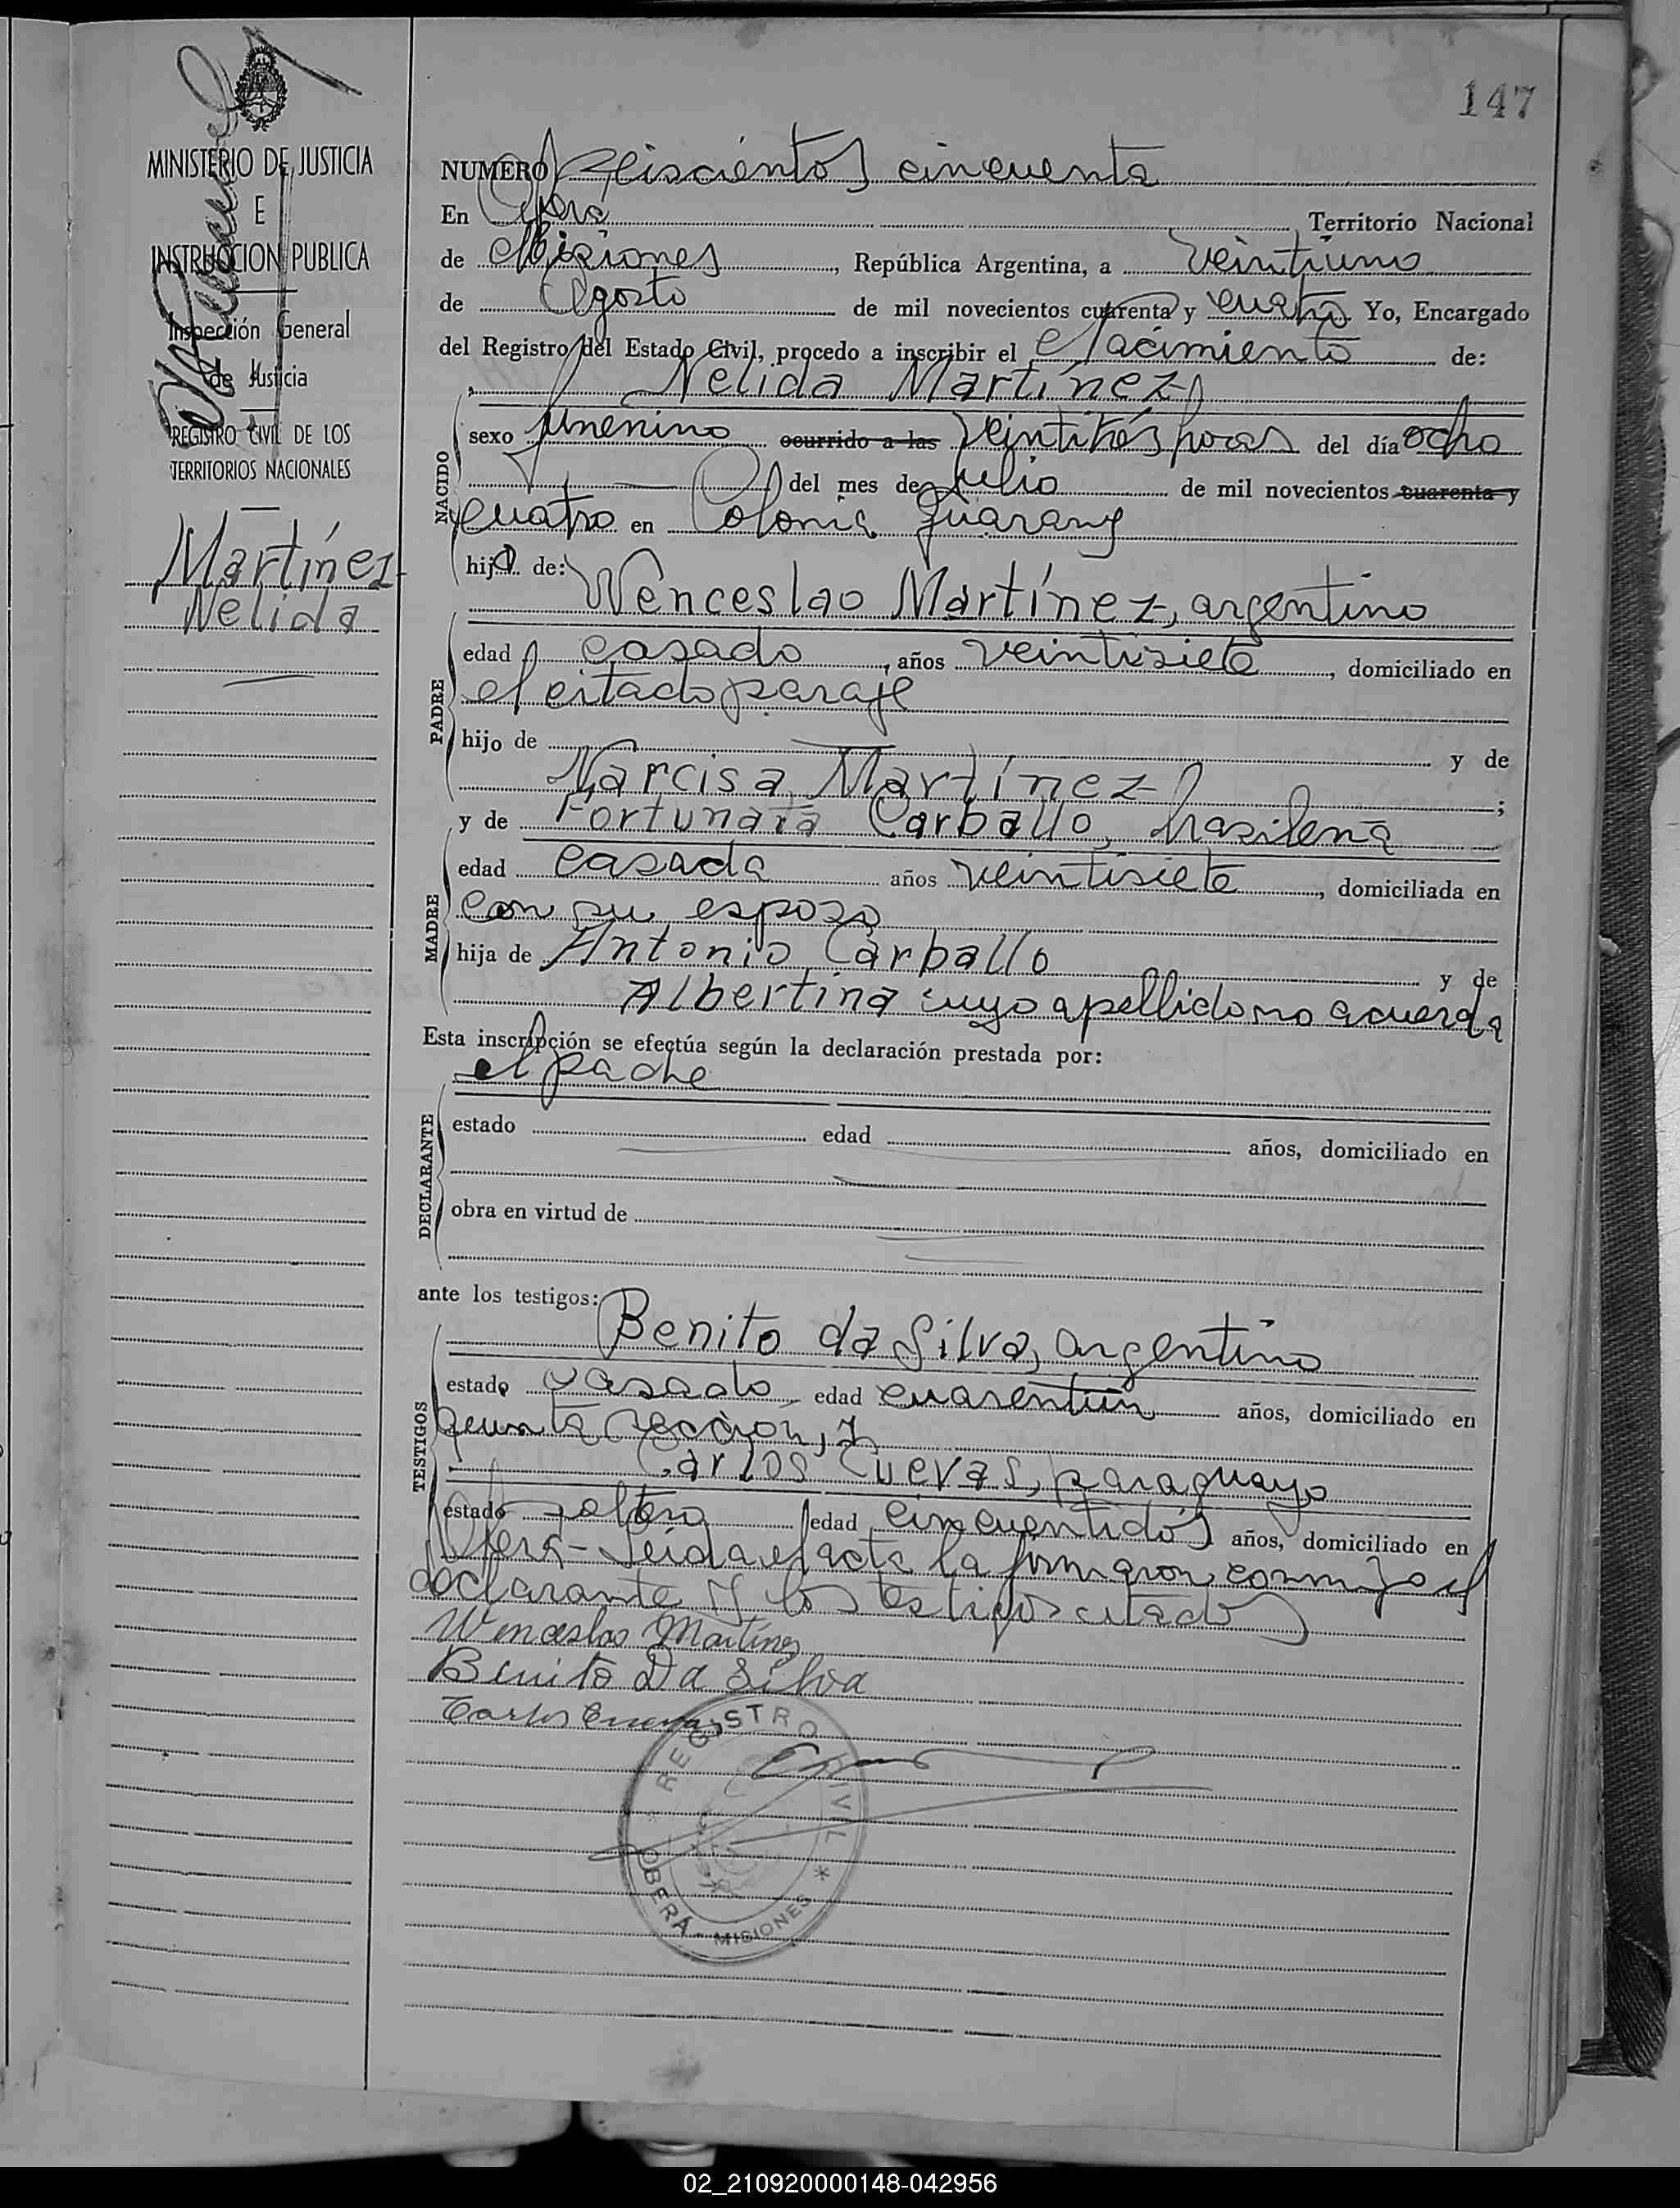 147
MINISTERIO DE JUSTICIA
E
INSTRUCCION PUBLICA
Inspección General
de Justicia
REGISTRO CIVIL DE LOS
TERRITORIOS NACIONALES
Martínez
Nelida
NUMERO Seiscientos cincuenta
En Oberá Territorio Nacional
de Misiones, República Argentina, a veintiuno
de Agosto de mil novecientos cuarenta y cuatro Yo, Encargado
del Registro del Estado Civil, procedo a inscribir el Nacimiento de:
Nelida Martínez
NACIDO
sexo femenino ocurrido a las veintitrés horas del día ocho
del mes de julio de mil novecientos cuarenta y
cuatro en Colonia Guarany
hija de:
Wenceslao Martínez, argentino
PADRE
edad casado, años veintisiete, domiciliado en
el citado paraje
hijo de y de
Narcisa Martínez;
y de Fortunata Carballo, brasileña
MADRE
edad casada años veintisiete, domiciliada en
con su esposo
hija de Antonio Carballo y de
Albertina cuyo apellido no acuerda
Esta inscripción se efectúa según la declaración prestada por:
el padre
DECLARANTE
estado edad años, domiciliado en
obra en virtud de
ante los testigos:
Benito da Silva, argentino
TESTIGOS
estado casado edad cuarentiún años, domiciliado en
quinta sección, y
Carlos Cuevas, paraguayo
estado soltero edad cincuentidós años, domiciliado en
Oberá - Leida el acta la firmaron conmigo el
declarante y los testigos citados
Wenceslao Martínez
Benito Da Silva
Carlos Cuevas
REGISTRO CIVIL * OBERÁ - MISIONES *
02_210920000148-042956